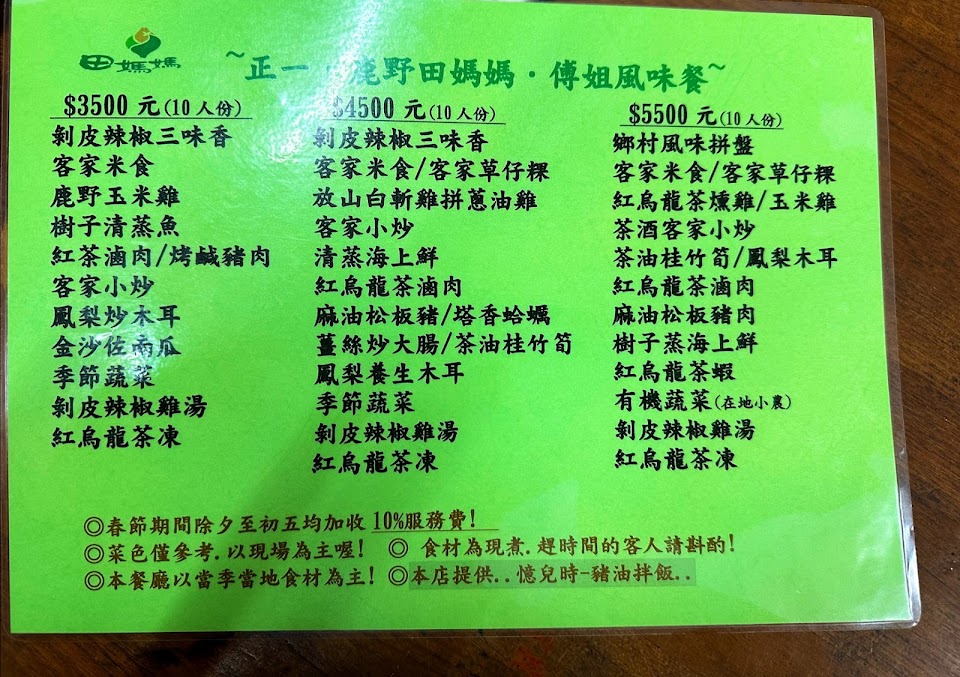 田媽媽
~正一・鹿野田媽媽・傅姐風味餐~
$3500 元(10 人份)
剝皮辣椒三味香
客家米食
鹿野玉米雞
樹子清蒸魚
紅茶滷肉/烤鹹豬肉
客家小炒
鳳梨炒木耳
金沙佐南瓜
季節蔬菜
剝皮辣椒雞湯
紅烏龍茶凍
$4500 元(10 人份)
剝皮辣椒三味香
客家米食/客家草仔粿
放山白斬雞拼蔥油雞
客家小炒
清蒸海上鮮
紅烏龍茶滷肉
麻油松板豬/塔香蛤蠣
薑絲炒大腸/茶油桂竹筍
鳳梨養生木耳
季節蔬菜
剝皮辣椒雞湯
紅烏龍茶凍
$5500 元(10 人份)
鄉村風味拼盤
客家米食/客家草仔粿
紅烏龍茶燻雞/玉米雞
茶酒客家小炒
茶油桂竹筍/鳳梨木耳
紅烏龍茶滷肉
麻油松板豬肉
樹子蒸海上鮮
紅烏龍茶蝦
有機蔬菜(在地小農)
剝皮辣椒雞湯
紅烏龍茶凍
◎春節期間除夕至初五均加收 10%服務費!
◎菜色僅參考.以現場為主喔! ◎ 食材為現煮.趕時間的客人請斟酌!
◎本餐廳以當季當地食材為主! ◎本店提供..憶兒時-豬油拌飯..